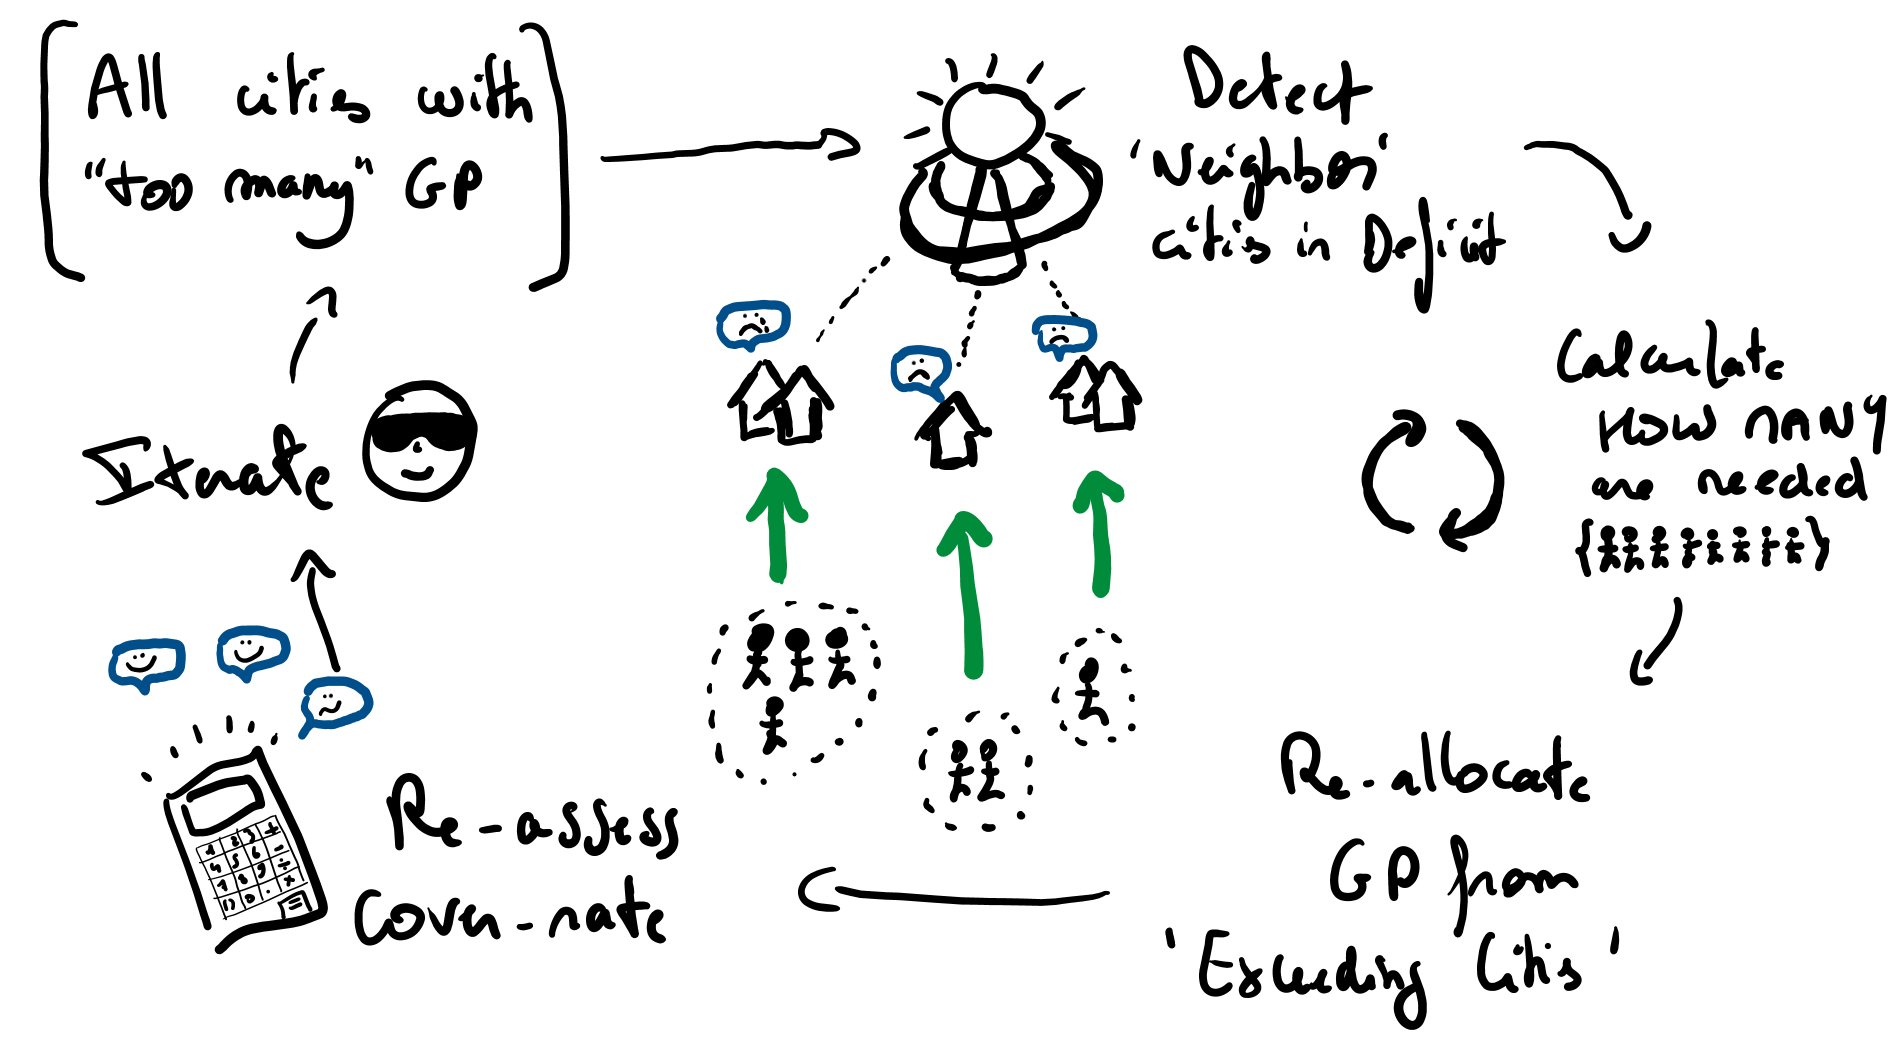 All cities with
"too many" GP
Detect
'Neighbor'
cities in Deficit
Calculate
HOW MANY
are needed
Re-allocate
GP from
'Exceeding Cities'
Re-assess
Cover-rate
Iterate
1 2 3 +
4 5 6 -
7 8 9 ÷
0 . ×
=